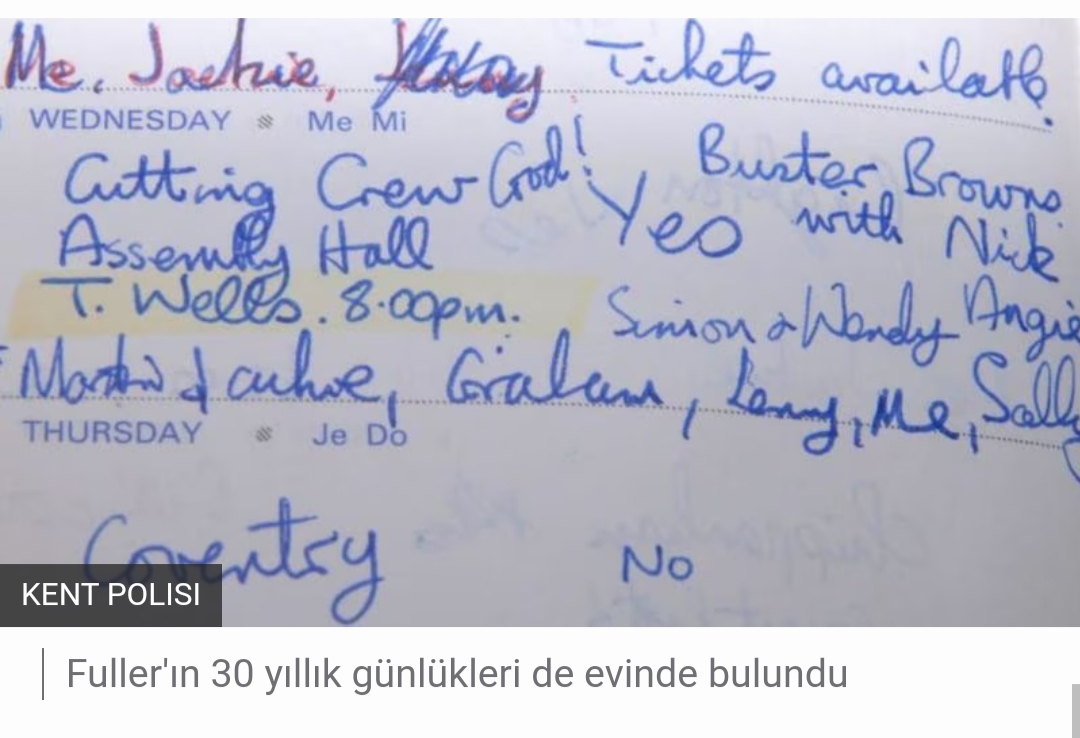 Me, Jackie, Tickets available.
WEDNESDAY Me Mi
Cutting Crew God! Buster Browns
Assembly Hall Yes with Nick
T. Wells. 8.00pm. Simon & Wendy Angie
Martin Jackie, Graham, Lenny, Me, Sally
THURSDAY Je Do
Coventry No
KENT POLISI
Fuller'ın 30 yıllık günlükleri de evinde bulundu